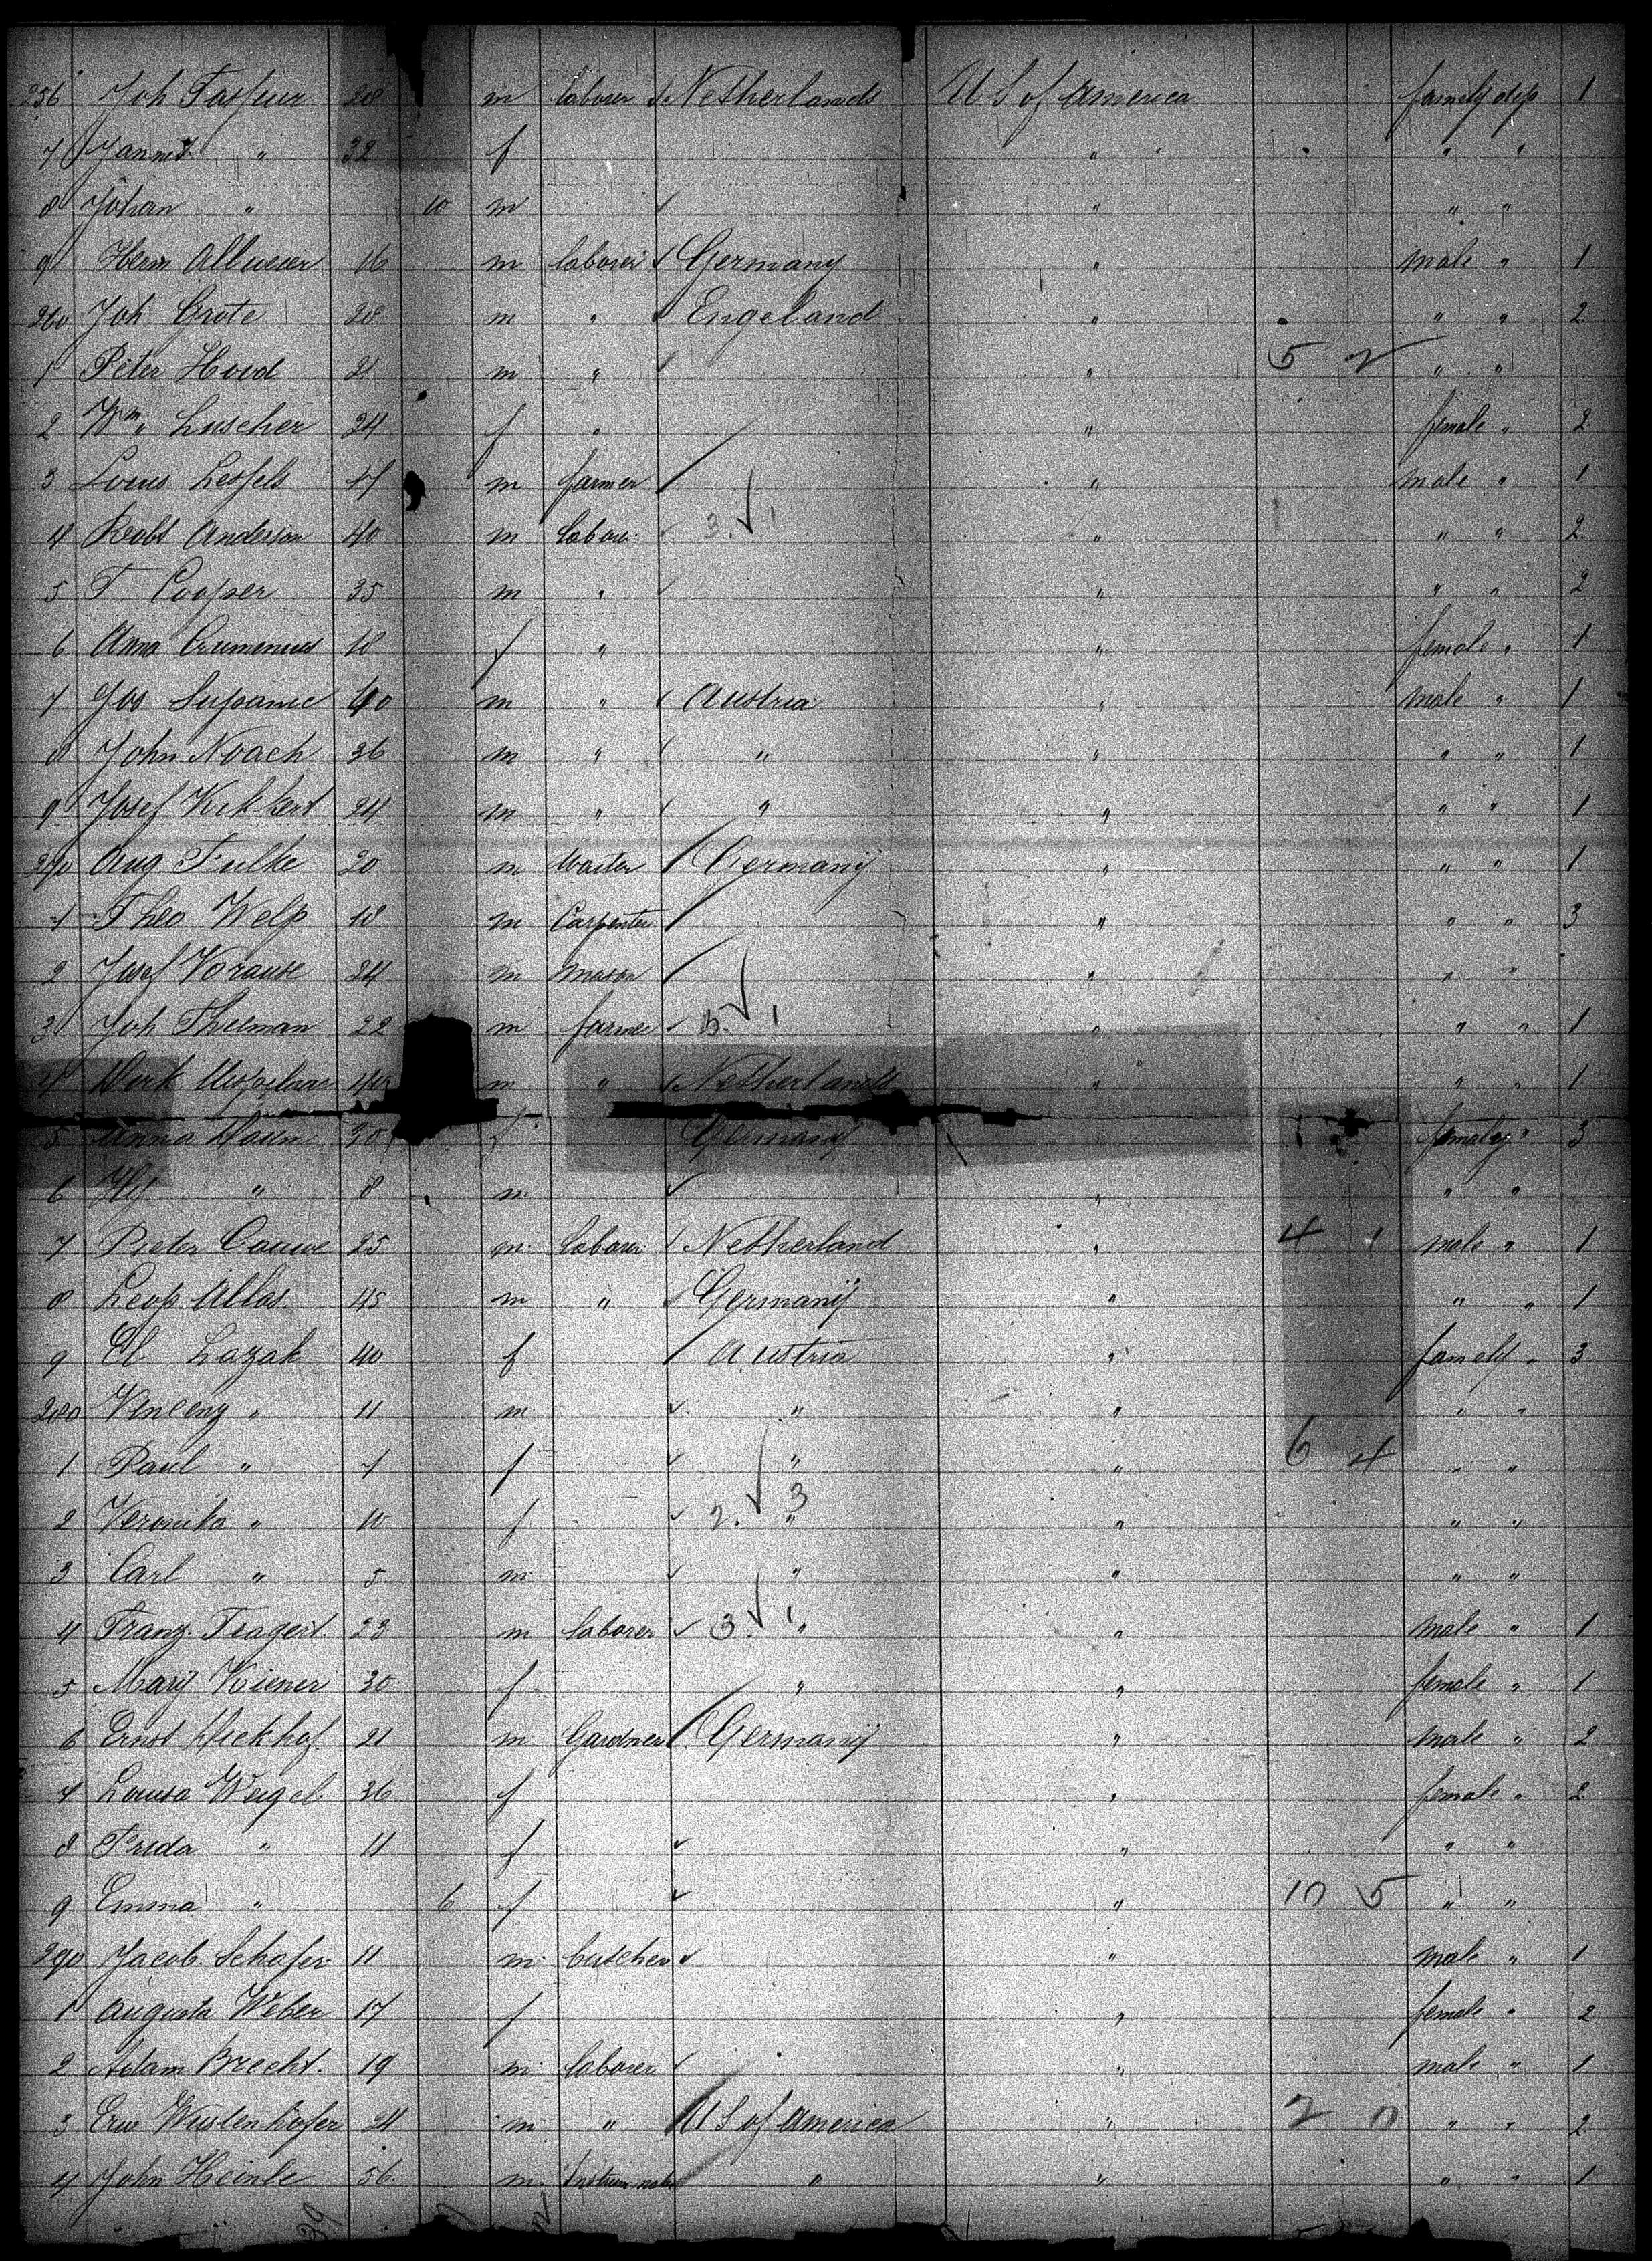 256 Joh 28 m laborer Netherlands U S of America family dep 1
7 " 32 f " " "
8 Johan " 10 m " " "
9 Herm 16 m laborer Germany " male " 1
260 Joh Grote 28 m " Engeland " " " 2
1 Peter Hood 21 m " " 5 2 " "
2 Wm Luscher 24 f " " female " 2
3 Louis m farmer " male " 1
4 Robt Anderson 40 m laborer 3. 1 " " " 2
5 T Cooper 35 m " " " " 2
6 Anna 18 f " " female " 1
7 Jos 40 m " Austria " male " 1
8 John Noach 36 m " " " " " 1
9 Josef 24 m " " " " " 1
270 Aug. 20 m Waiter Germany " " " 1
1 Theo Welp 18 m Carpenter " " " 3
2 Josef 24 m mason " " "
3 Joh Thileman 22 m farmer 5. 1 " " " 1
4 m " Netherlands " " " 1
5 Anna 30 f Germany " family " 3
6 Hy " 8 m " " "
7 Pieter 25 m laborer Netherland " 4 1 male " 1
8 Leop. 45 m " Germany " " " 1
9 El Lazak 40 f Austria " family " 3
280 Vincenz " 11 m " " " "
1 Paul " 7 f " " 6 4 " "
2 Veronika " 10 f 2. 3 " " " "
3 Carl " 5 m " " " "
4 Franz 23 m laborer 3. 1 " " male " 1
5 Mary Kiener 30 f " " female " 1
6 Ernst Diekhof 21 m Gardner Germany " male " 2
7 Louisa Weigel 36 f " female " 2
8 Frida " 11 f " " "
9 Emma " 6 f " 10 5 " "
290 Jacob Schafer 11 m butcher " male " 1
1 Augusta Weber 17 f " female " 2
2 Adam Brecht. 19 m laborer " male " 1
3 Wustenhofer 24 m " U S of America " 2 0 " " 2
4 John Heinle 56 m " " " " 1